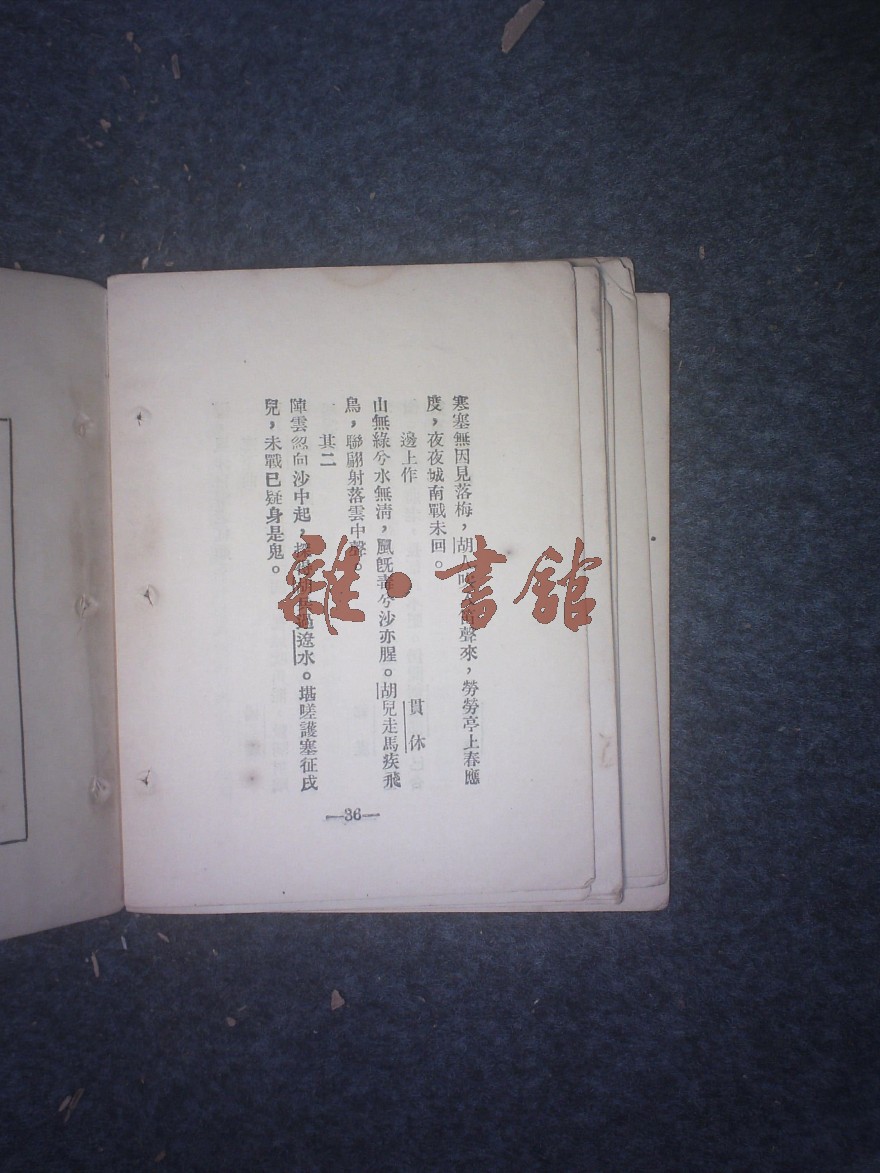 寒塞無因見落梅，胡人吹　笛聲來，勞勞亭上春應
度，夜夜城南戰未回。
邊上作　貫休
山無綠兮水無清，風旣毒兮沙亦腥。胡兒走馬疾飛
鳥，聯翩射落雲中聲。
其二
陣雲忽向沙中起，探得胡兵過遼水。堪嗟護塞征戍
兒，未戰已疑身是鬼。
—36—
雜·書館